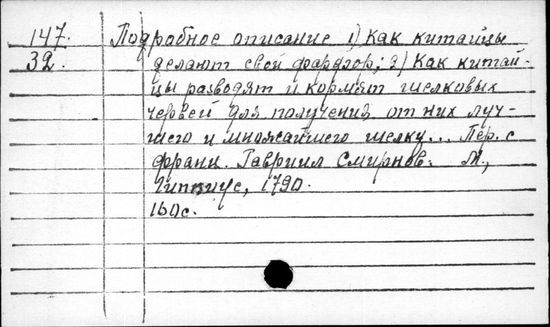 147. Подробное описание 1) Как китайцы
32. делают свой фарфор; 2) Как китай-
цы разводят и кормят шелковых
червей для получения от них луч-
шего и множайшего шелку... Пер. с
франц. Гавриил Смирнов. М.,
Гиппиус, 1790.
160с.